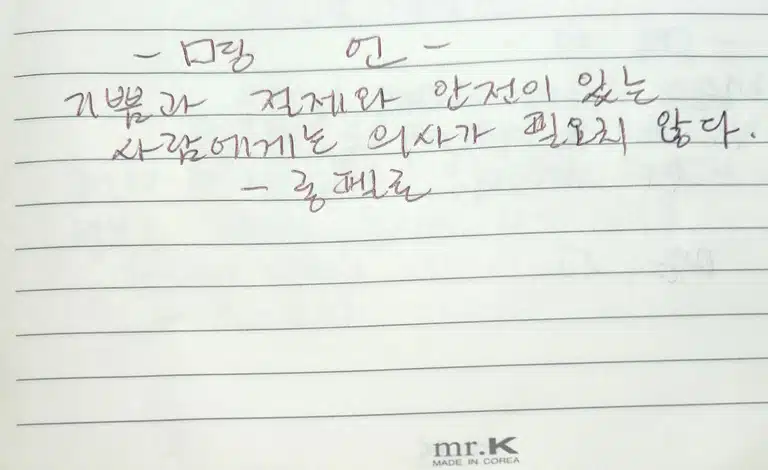 - 명 언 -
기쁨과 절제와 안전이 있는
사람에게는 의사가 필요치 않다.
- 롱펠로
mr.K
MADE IN COREA